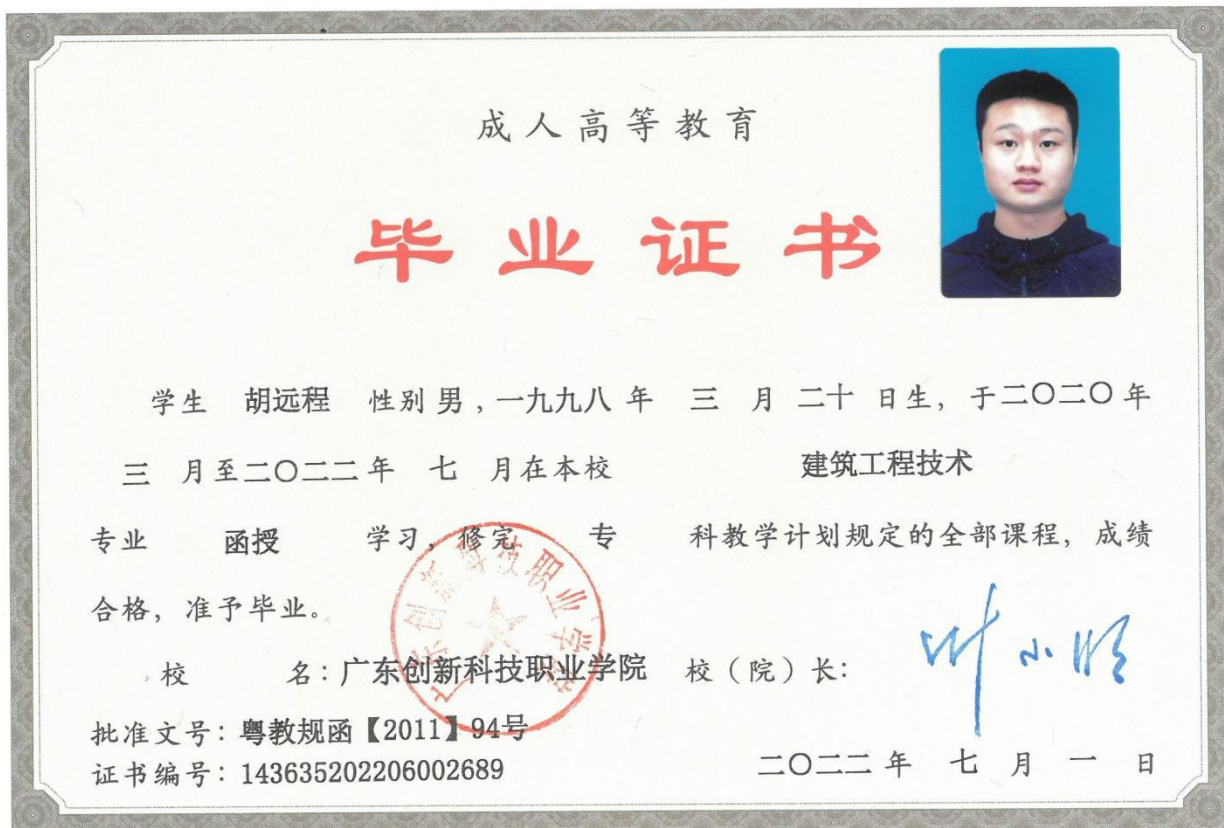 成人高等教育
毕业证书
学生 胡远程 性别 男，一九九八 年 三 月 二十 日生，于二〇二〇 年
三 月至二〇二二 年 七 月在本校 建筑工程技术
专业 函授 学习，修完 专 科教学计划规定的全部课程，成绩
合格，准予毕业。
广东创新科技职业学院
校 名：广东创新科技职业学院 校（院）长：
批准文号：粤教规函【2011】94号
证书编号：143635202206002689 二〇二二 年 七 月 一 日